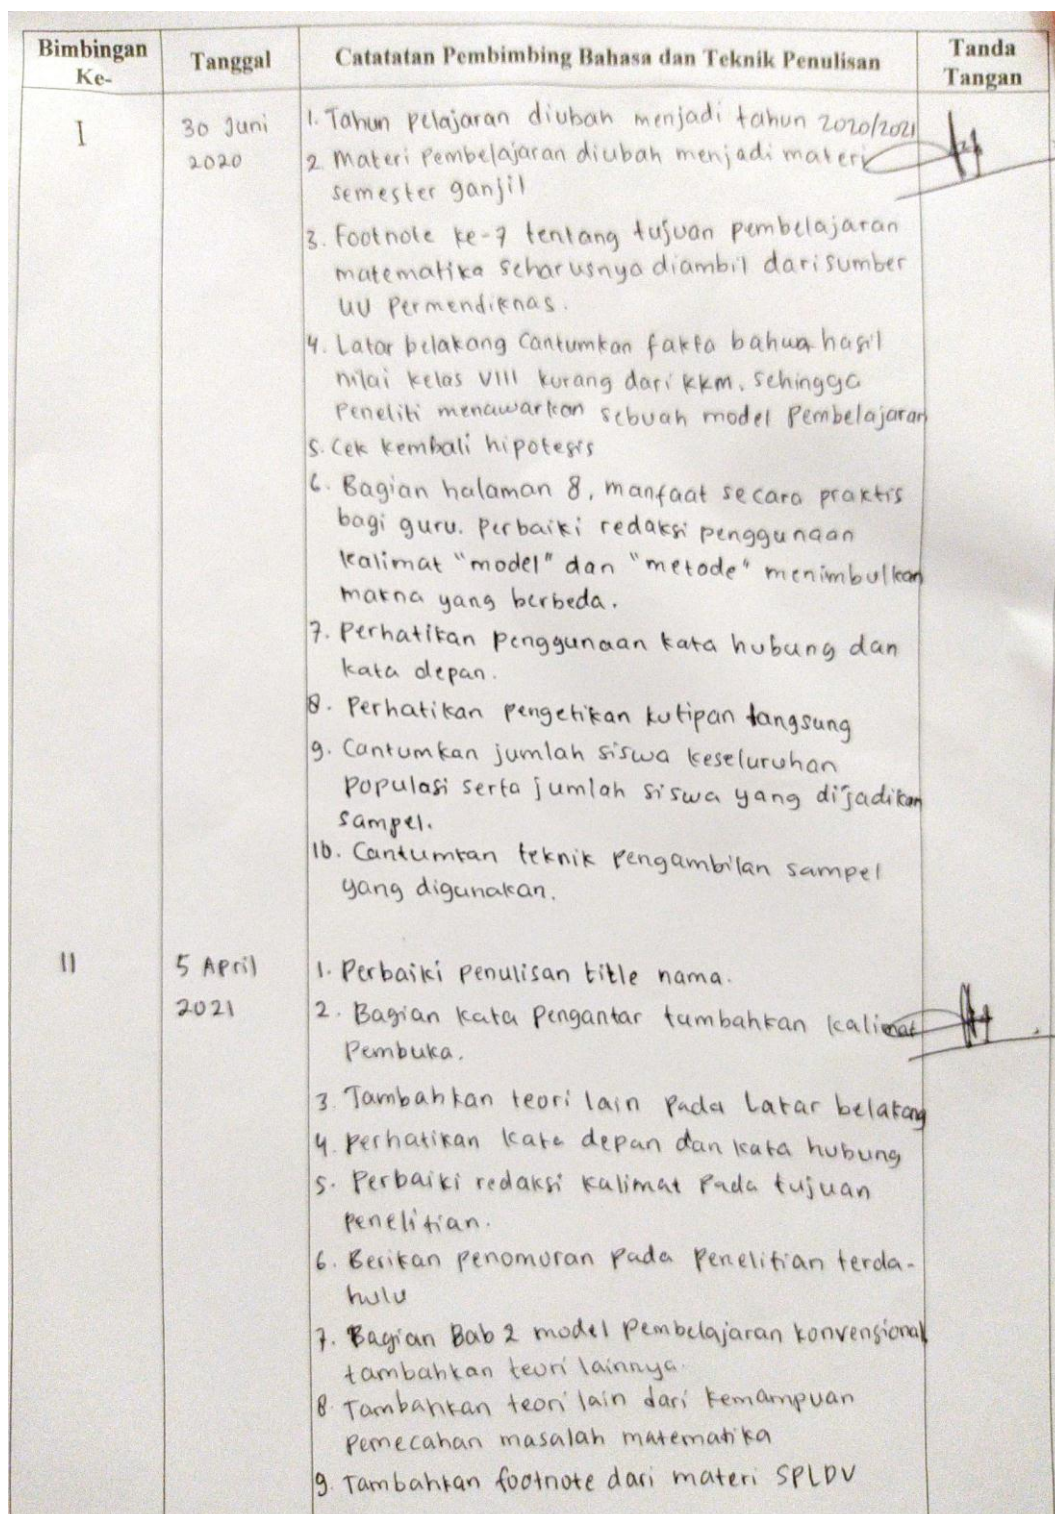 Bimbingan Ke-
Tanggal
Catatatan Pembimbing Bahasa dan Teknik Penulisan
Tanda Tangan
I
30 Juni
2020
1. Tahun pelajaran diubah menjadi tahun 2020/2021
2 Materi Pembelajaran diubah menjadi materi
semester ganjil
3. Footnote ke-7 tentang tujuan pembelajaran
matematika seharusnya diambil dari sumber
UU Permendiknas.
4. Latar belakang cantumkan fakta bahwa hasil
nilai kelas VIII kurang dari KKM, sehingga
Peneliti menawarkan sebuah model Pembelajaran
5. Cek kembali hipotesis
6. Bagian halaman 8, manfaat secara praktis
bagi guru. Perbaiki redaksi penggunaan
kalimat "model" dan "metode" menimbulkan
makna yang berbeda.
7. Perhatikan penggunaan kata hubung dan
kata depan.
8. Perhatikan pengetikan kutipan langsung
9. Cantumkan jumlah siswa keseluruhan
populasi serta jumlah siswa yang dijadikan
sampel.
10. Cantumkan teknik pengambilan sampel
yang digunakan.
II
5 April
2021
1. Perbaiki penulisan title nama.
2. Bagian kata pengantar tambahkan kalimat
Pembuka.
3. Tambahkan teori lain pada Latar belakang
4. perhatikan kata depan dan kata hubung
5. Perbaiki redaksi kalimat Pada tujuan
penelitian.
6. Berikan penomoran pada Penelitian terda-
hulu
7. Bagian Bab 2 model Pembelajaran konvensional
tambahkan teori lainnya.
8. Tambahkan teori lain dari kemampuan
pemecahan masalah matematika
9. Tambahkan footnote dari materi SPLDV